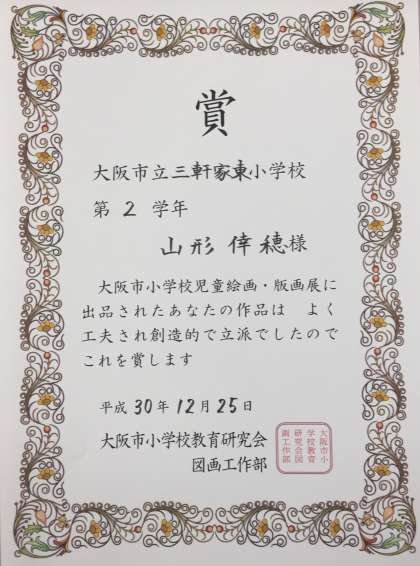 賞
大阪市立三軒家東小学校
第 2 学年
山形 倖穂様
大阪市小学校児童絵画・版画展に
出品されたあなたの作品は よく
工夫され創造的で立派でしたので
これを賞します
平成 30 年 12 月 25 日
大阪市小学校教育研究会
図画工作部
大阪市小
学校教育
研究会図
画工作部